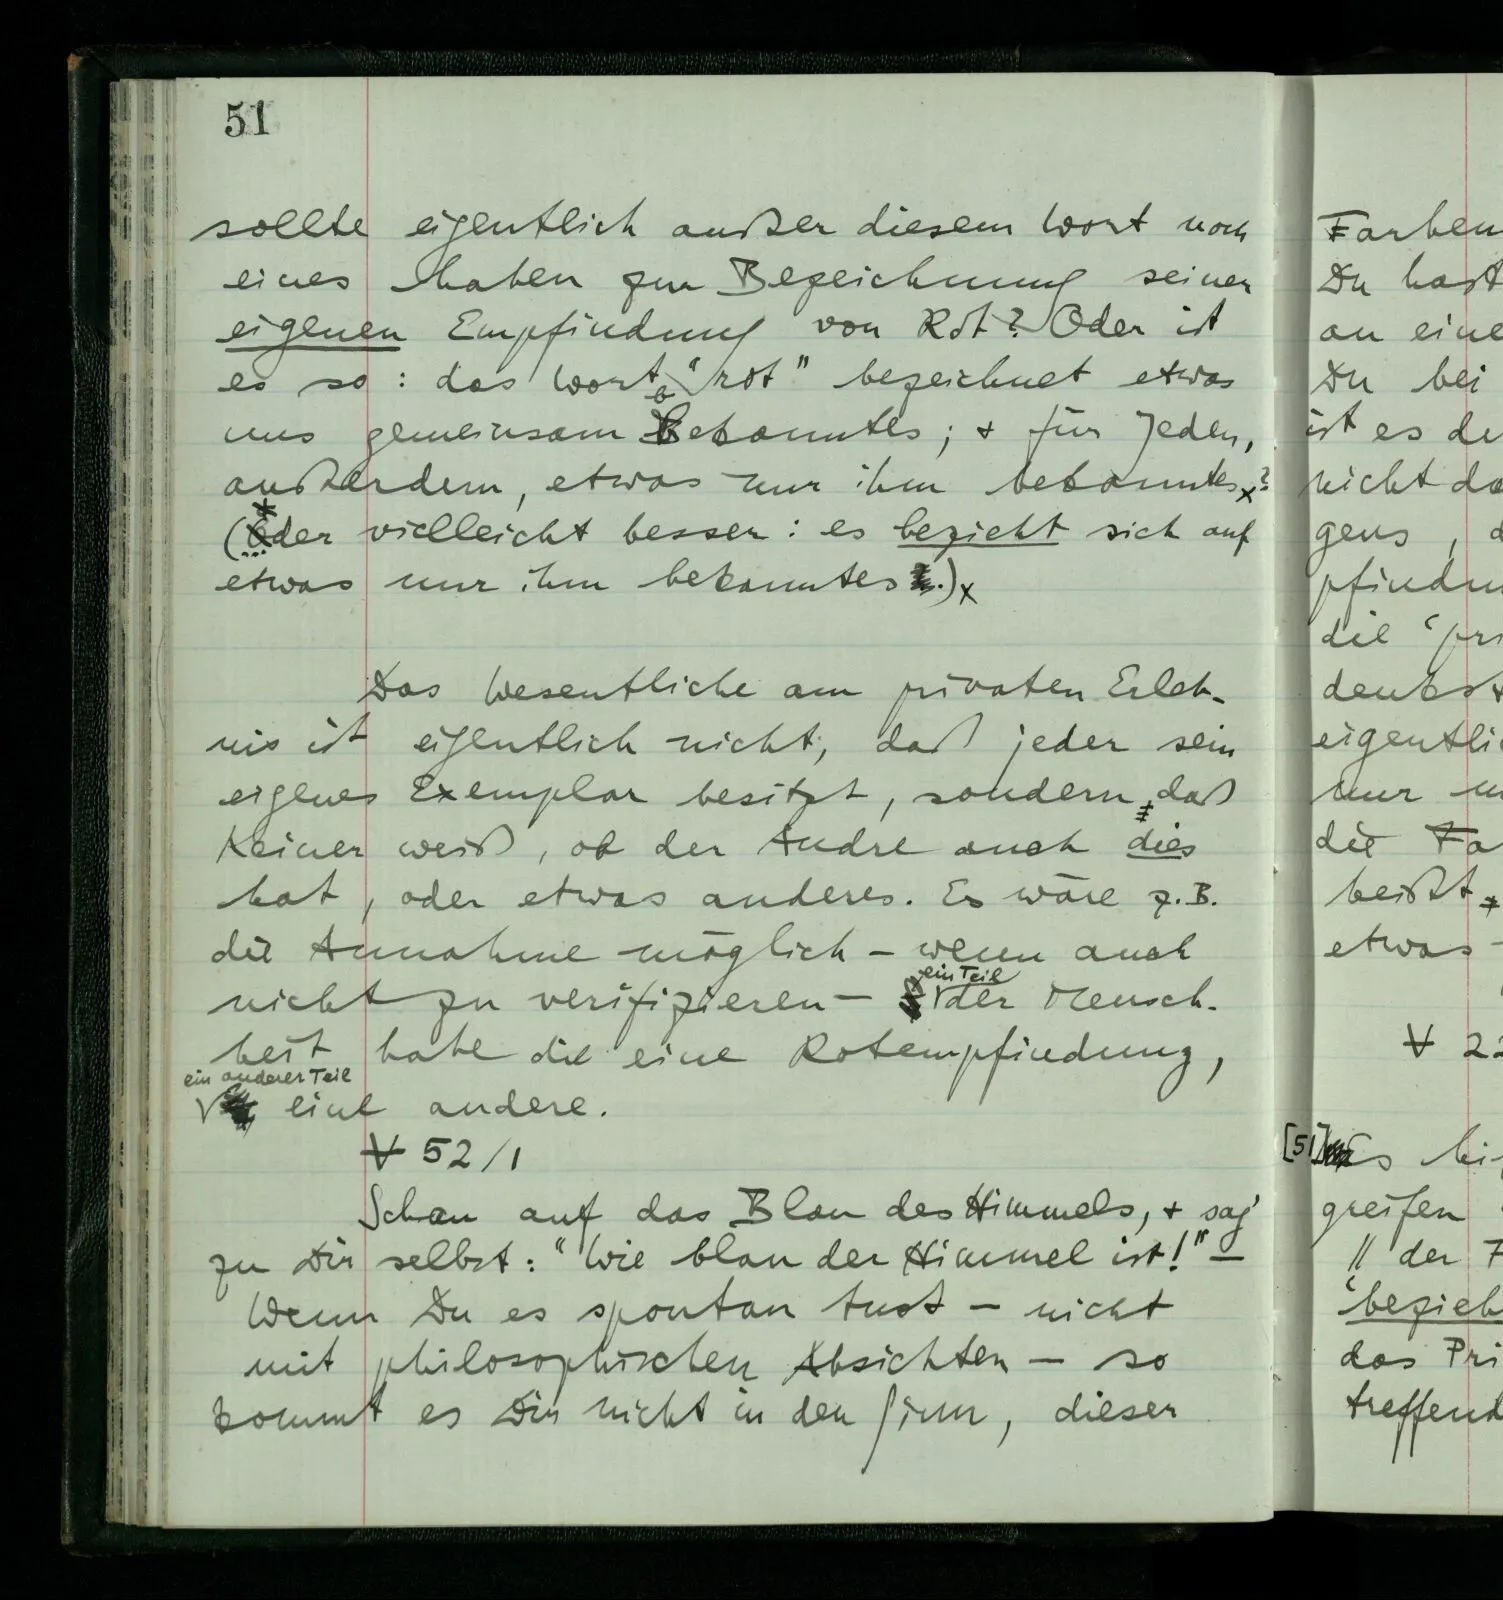 51
sollte eigentlich außer diesem Wort noch
eines haben zur Bezeichnung seiner
eigenen Empfindung von Rot? Oder ist
es so: das Wort "rot" bezeichnet etwas
uns gemeinsam Bekanntes; + für Jeden,
außerdem, etwas nur ihm bekanntes?
(Oder vielleicht besser: es bezieht sich auf
etwas nur ihm bekanntes.)
Das Wesentliche am privaten Erleb-
nis ist eigentlich nicht, daß jeder sein
eigenes Exemplar besitzt, sondern, daß
Keiner weiß, ob der Andre auch dies
hat, oder etwas anderes. Es wäre z.B.
die Annahme möglich – wenn auch
nicht zu verifizieren –
ein Teil
der Mensch-
heit habe die eine Rotempfindung,
ein anderer Teil
eine andere.
∀ 52/1
Schau auf das Blau des Himmels, + sag'
zu Dir selbst: "Wie blau der Himmel ist!" –
Wenn Du es spontan tust – nicht
mit philosophischen Absichten – so
kommt es Dir nicht in den Sinn, dieser
Farben
Du hast
an eine
Du bei
ist es
nicht
gens,
die
eigentlic
nur
die
heißt
etwas
[51]
greifen
" der
"bezieh
das Pri
treffend